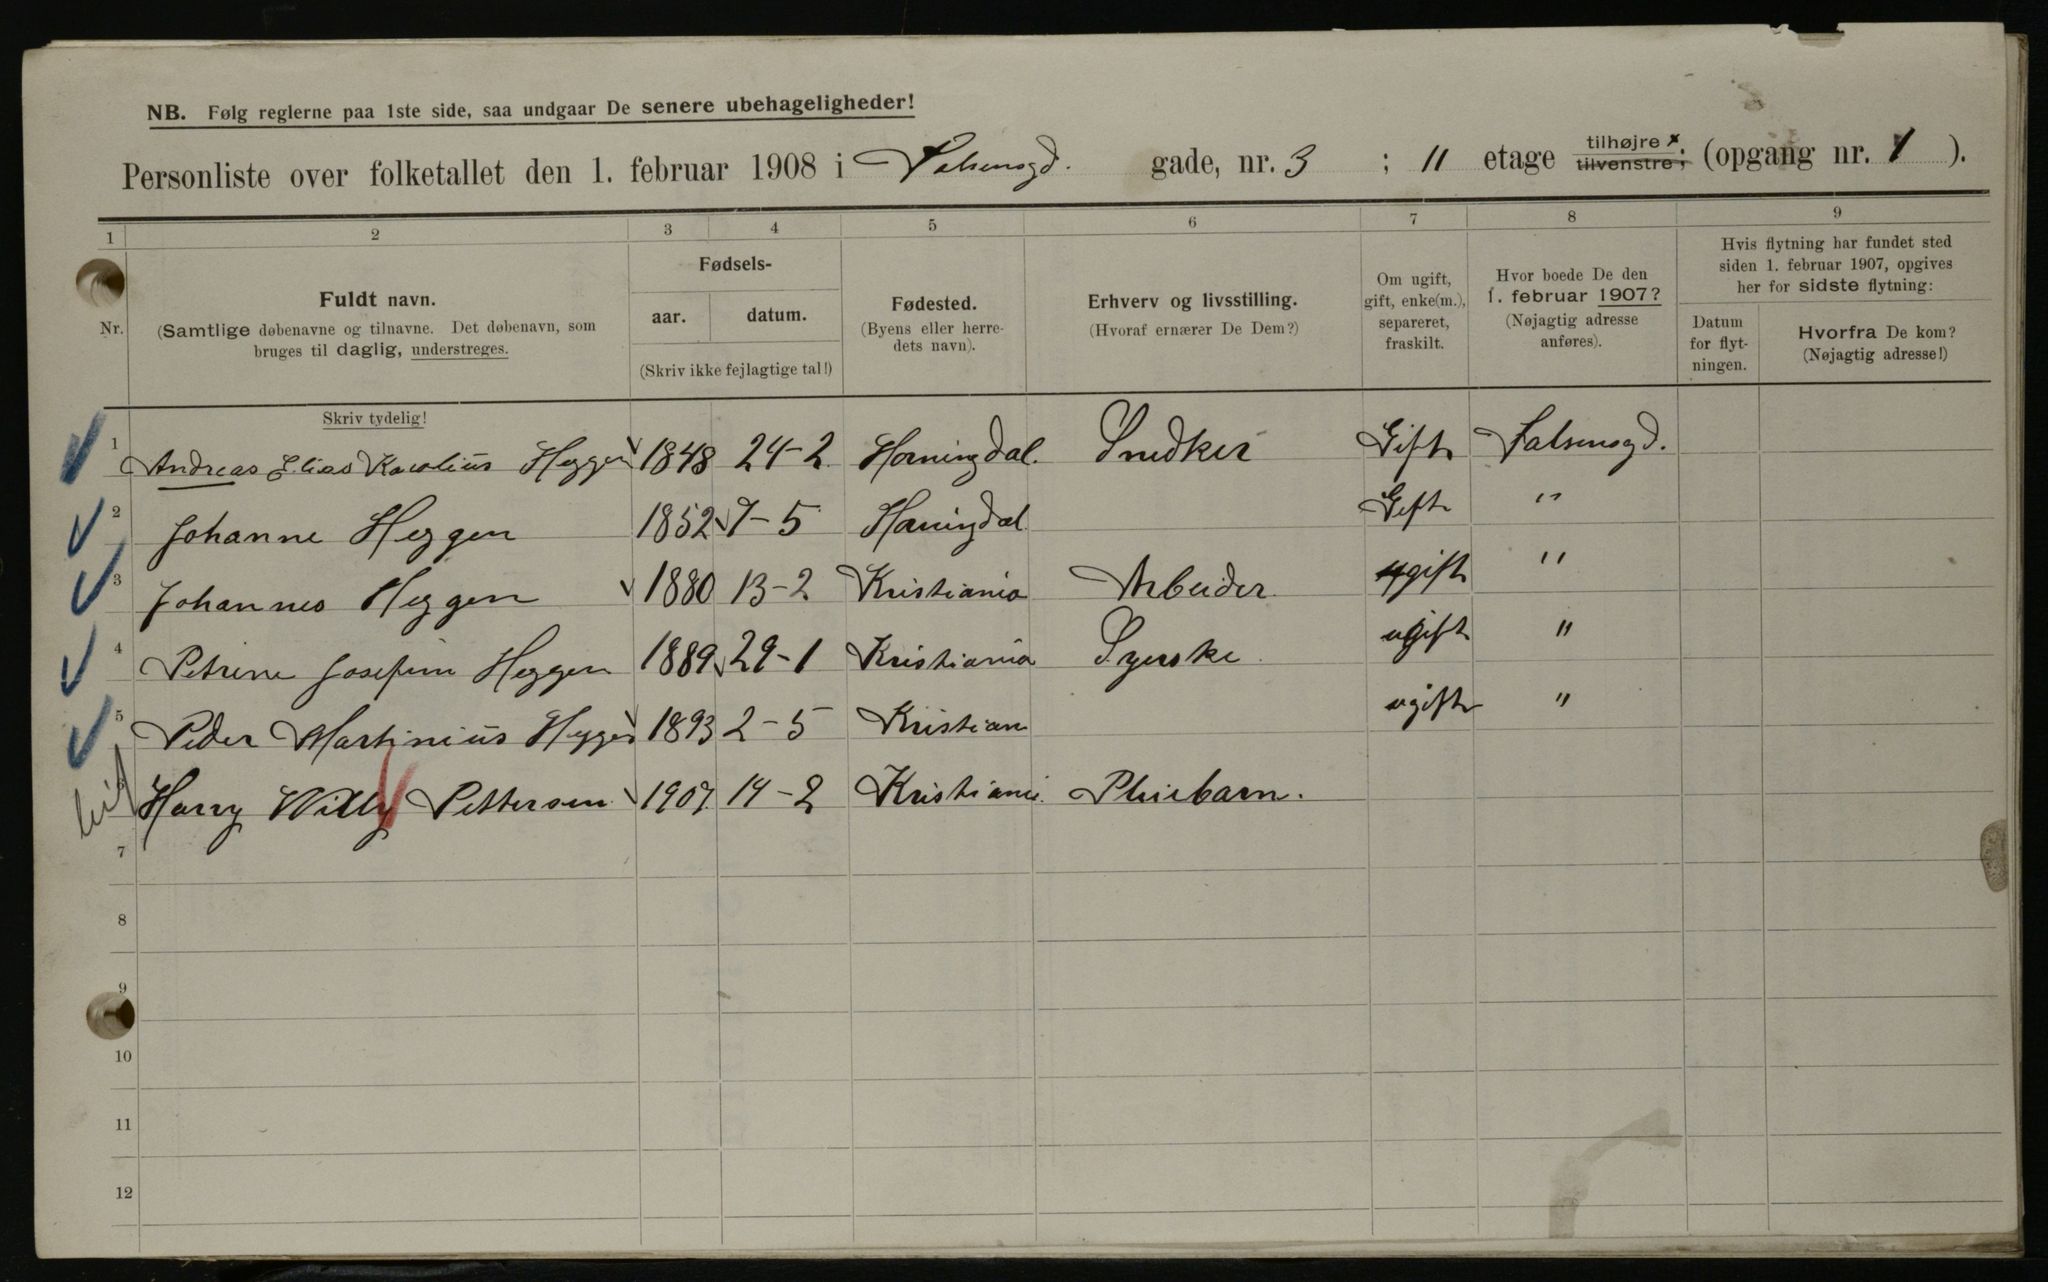 NB. Følg reglerne paa 1ste side, saa undgaar De senere ubehageligheder!
Personliste over folketallet den 1. februar 1908 i Falsensgd. gade, nr. 3 ; 11 etage tilhøjre x tilvenstre; (opgang nr. 1 ).
1 2 3 4 5 6 7 8 9
Nr.
Fuldt navn.
(Samtlige døbenavne og tilnavne. Det døbenavn, som
bruges til daglig, understreges.
Skriv tydelig!
Fødsels-
aar. datum.
(Skriv ikke fejlagtige tal!)
Fødested.
(Byens eller herre-
dets navn).
Erhverv og livsstilling.
(Hvoraf ernærer De Dem?)
Om ugift,
gift, enke(m.),
separeret,
fraskilt.
Hvor boede De den
1. februar 1907?
(Nøjagtig adresse
anføres).
Hvis flytning har fundet sted
siden 1. februar 1907, opgives
her for sidste flytning:
Datum
for flyt-
ningen.
Hvorfra De kom?
(Nøjagtig adresse!)
1 Andreas Elias Karolius Heggen 1848 24-2 Horningdal. Snedker Gift Falsensgd.
2 Johanne Heggen 1852 7-5 Horningdal Gift "
3 Johannes Heggen 1880 13-2 Kristiania Arbeider ugift "
4 Petrine Josefine Heggen 1889 29-1 Kristiania Syerske ugift "
5 Peder Martinius Heggen 1893 2-5 Kristian ugift "
Harry Willy Pettersen 1907 14-2 Kristiania. Pleiebarn.
7
8
9
10
11
12